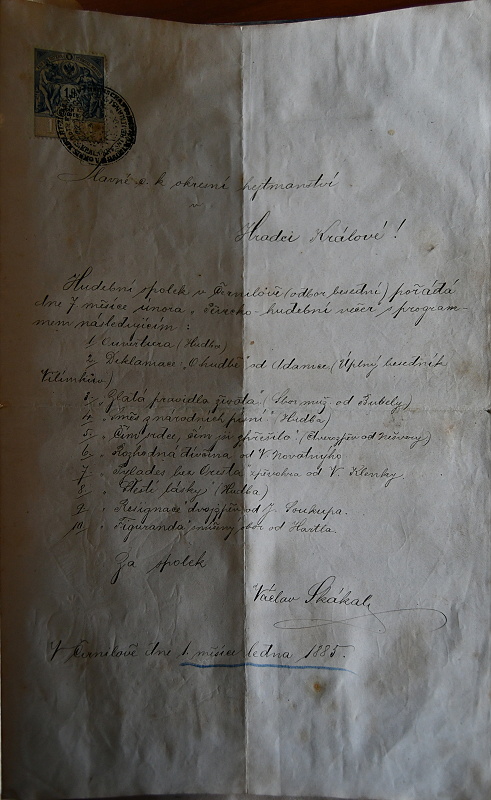 Slavné c. k. okresní hejtmanství
v
Hradci Králové!
"Hudební spolek" v Černilově (odbor besední) pořádá
dne 7. měsíce února hudební večer s program-
mem následujícím:
1. Ouvertura (Hudba)
2. Deklamace "O hudbě" od Adamce (Úplný besedník
3. "Zlatá pravidla života" (Sbor muž. od Bubely)
4. "Směs z národních písní" (Hudba)
5. "Čím srdce, čím (Čtverozpěv od
6. Rozhodná děvčina od V. Novotného
7. "Pylades bez Oresta" zpěvohra od V. Klenky
8. "Štěstí lásky" (Hudba)
9. Resignace dvojzpěv od J. Soukupa.
10. "Figuranda" mužský sbor od Hartla
Za spolek
Václav Skákal
V Černilově dne 1. měsíce ledna 1885.